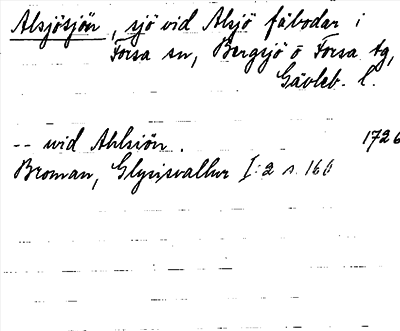 Alsjösjön, sjö vid Alsjö fäbodar i
Forsa sn, Bergsjö o Forsa tg,
Gävleb. l.
-- wid Ahlsiön. 1726
Broman, Glysisvallur I:2 s. 166